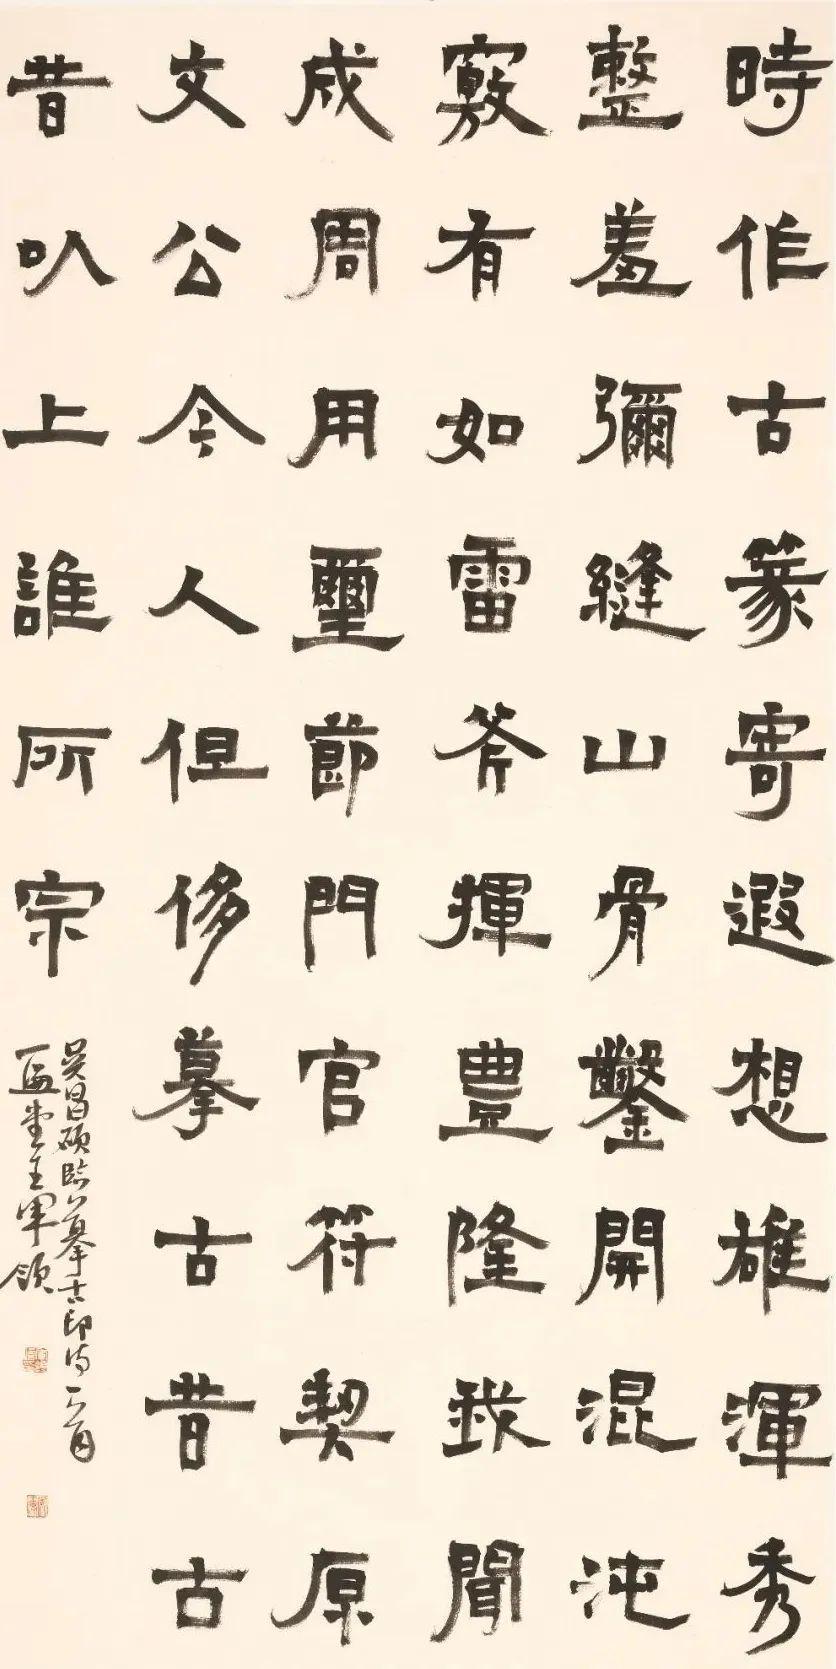 時作古篆寄遐想雄渾秀
整羞彌縫山骨鑿開混沌
竅有如雷斧揮豐隆我聞
成周用璽節門官符契原
文公今人但侈摹古昔古
昔以上誰所宗
吳昌碩臨摹古印詩
堂主軍領